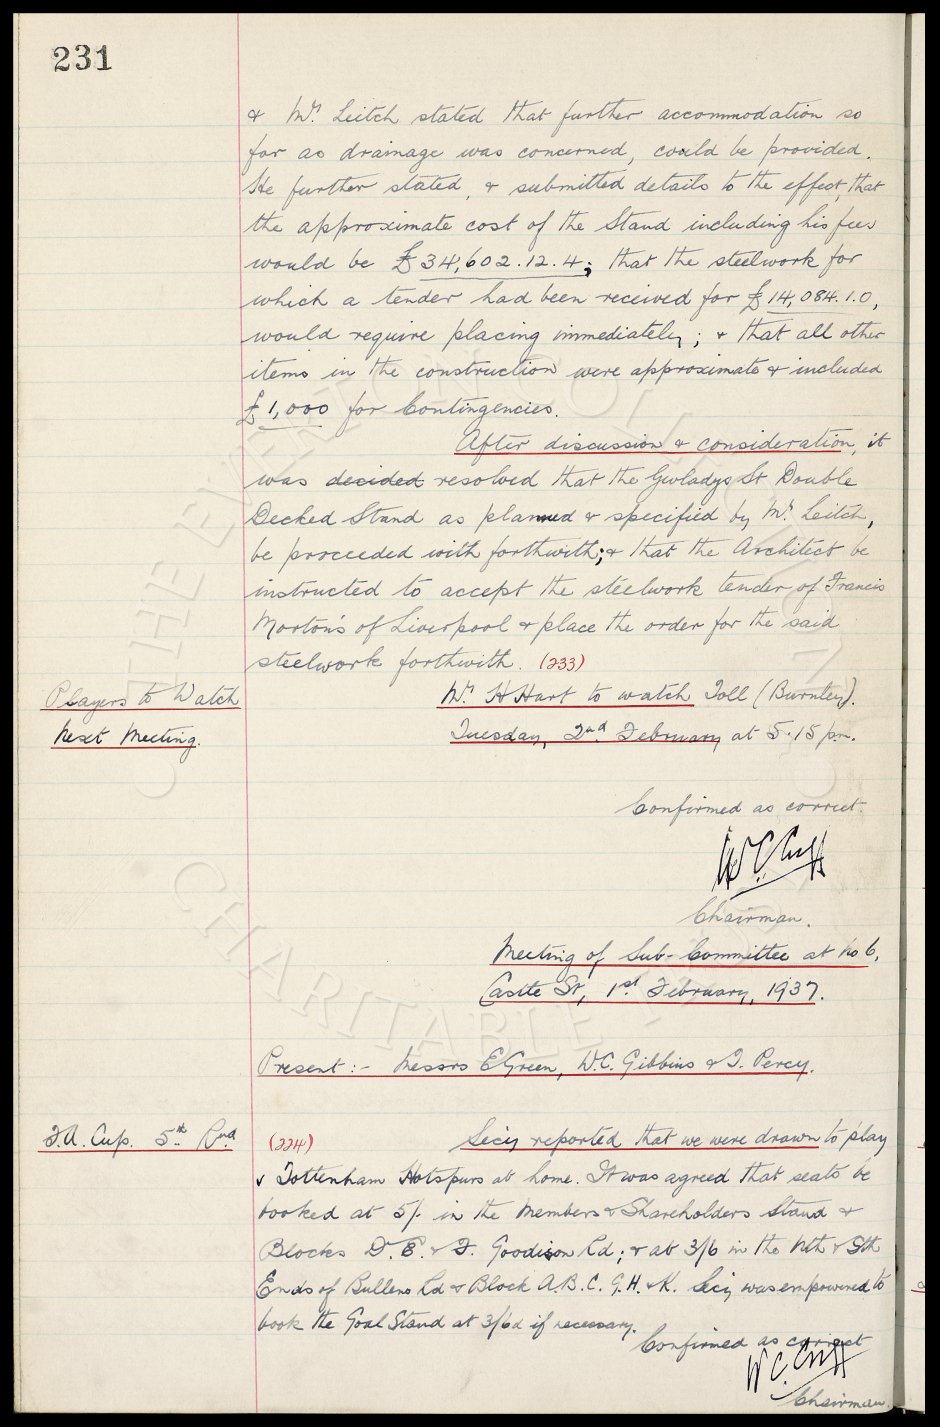 231
& Mr. Leitch stated that further accommodation so
far as drainage was concerned, could be provided.
He further stated, & submitted details to the effect, that
the approximate cost of the Stand including his fees
would be £34,602.12.4; that the steelwork for
which a tender had been received for £14,084.1.0,
would require placing immediately; & that all other
items in the construction were approximate & included
£1,000 for Contingencies.
After discussion & consideration, it
was decided resolved that the Gwladys St Double
Decked Stand as planned & specified by Mr. Leitch,
be proceeded with forthwith; & that the Architect be
instructed to accept the steelwork tender of Francis
Morton's of Liverpool & place the order for the said
steelwork forthwith. (233)
Players to Watch
Mr. H Hart to watch Toll (Burnley).
Next Meeting.
Tuesday, 2nd February at 5.15 pm.
Confirmed as correct.
W C Cuff
Chairman.
Meeting of Sub-Committee at No 6,
Castle St, 1st February, 1937.
Present :- Messrs E Green, W.C. Gibbins & J. Percy.
F.A. Cup. 5th Rnd
(224)
Secy reported that we were drawn to play
v Tottenham Hotspurs at home. It was agreed that seats be
booked at 5/- in the Members & Shareholders Stand &
Blocks D. E. & F. Goodison Rd; & at 3/6 in the Nth & Sth
Ends of Bullens Rd & Block A.B.C. G.H. & K. Secy was empowered to
book the Goal Stand at 3/6d if necessary.
Confirmed as correct
W C Cuff
Chairman.
THE EVERTON COLLECTION
CHARITABLE